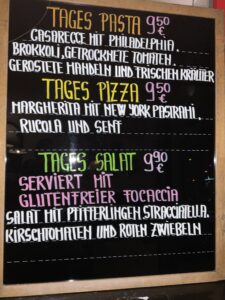 TAGES PASTA 9⁵⁰ €
CASARECCE MIT PHILADELPHIA,
BROKKOLI, GETROCKNETE TOMATEN,
GERÖSTETE MANDELN UND FRISCHEN KRÄUTER
TAGES PIZZA 9⁵⁰ €
MARGHERITA MIT NEW YORK PASTRAMI,
RUCOLA UND SENF
TAGES SALAT 9⁹⁰ €
SERVIERT MIT
GLUTENFREIER FOCACCIA
SALAT MIT PFIFFERLINGEN STRACCIATELLA,
KIRSCHTOMATEN UND ROTEN ZWIEBELN